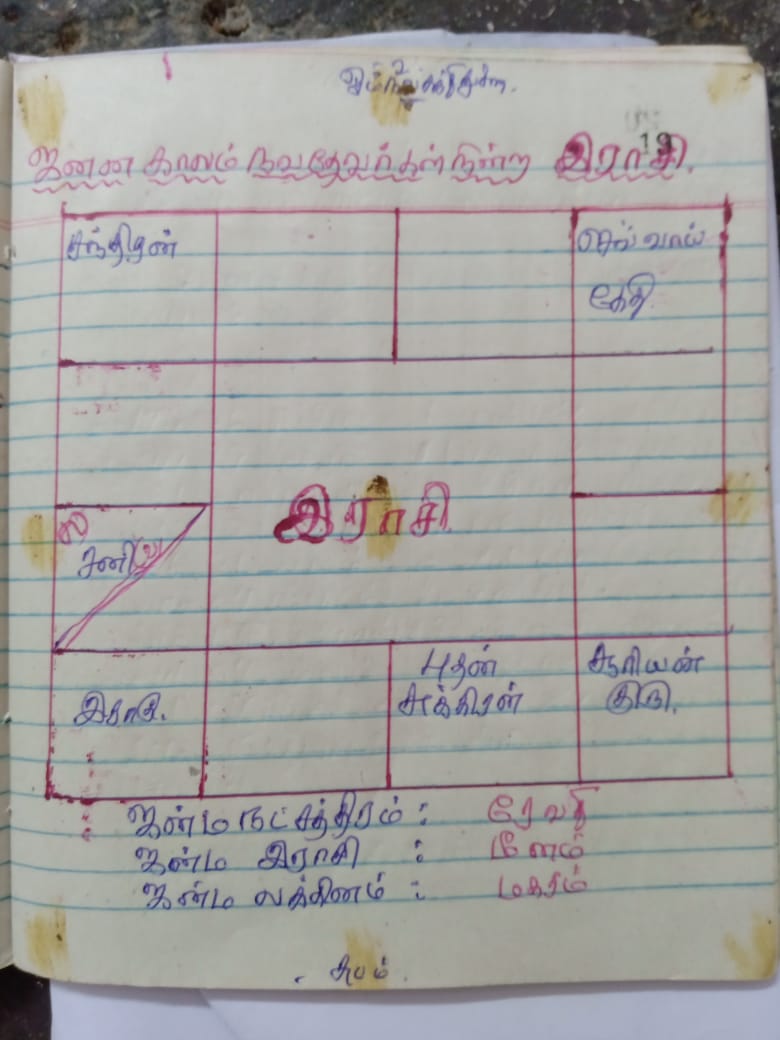 19
ஜனன காலம் நவதேவர்கள் நின்ற இராசி.
சந்திரன்
செவ்வாய்
கேது
இராசி
ல
சனி(வ)
புதன்
சுக்கிரன்
சூரியன்
குரு.
இராகு.
ஜன்ம நட்சத்திரம் : ரேவதி
ஜன்ம இராசி : மீனம்
ஜன்ம லக்கினம் : மகரம்
சுபம்.